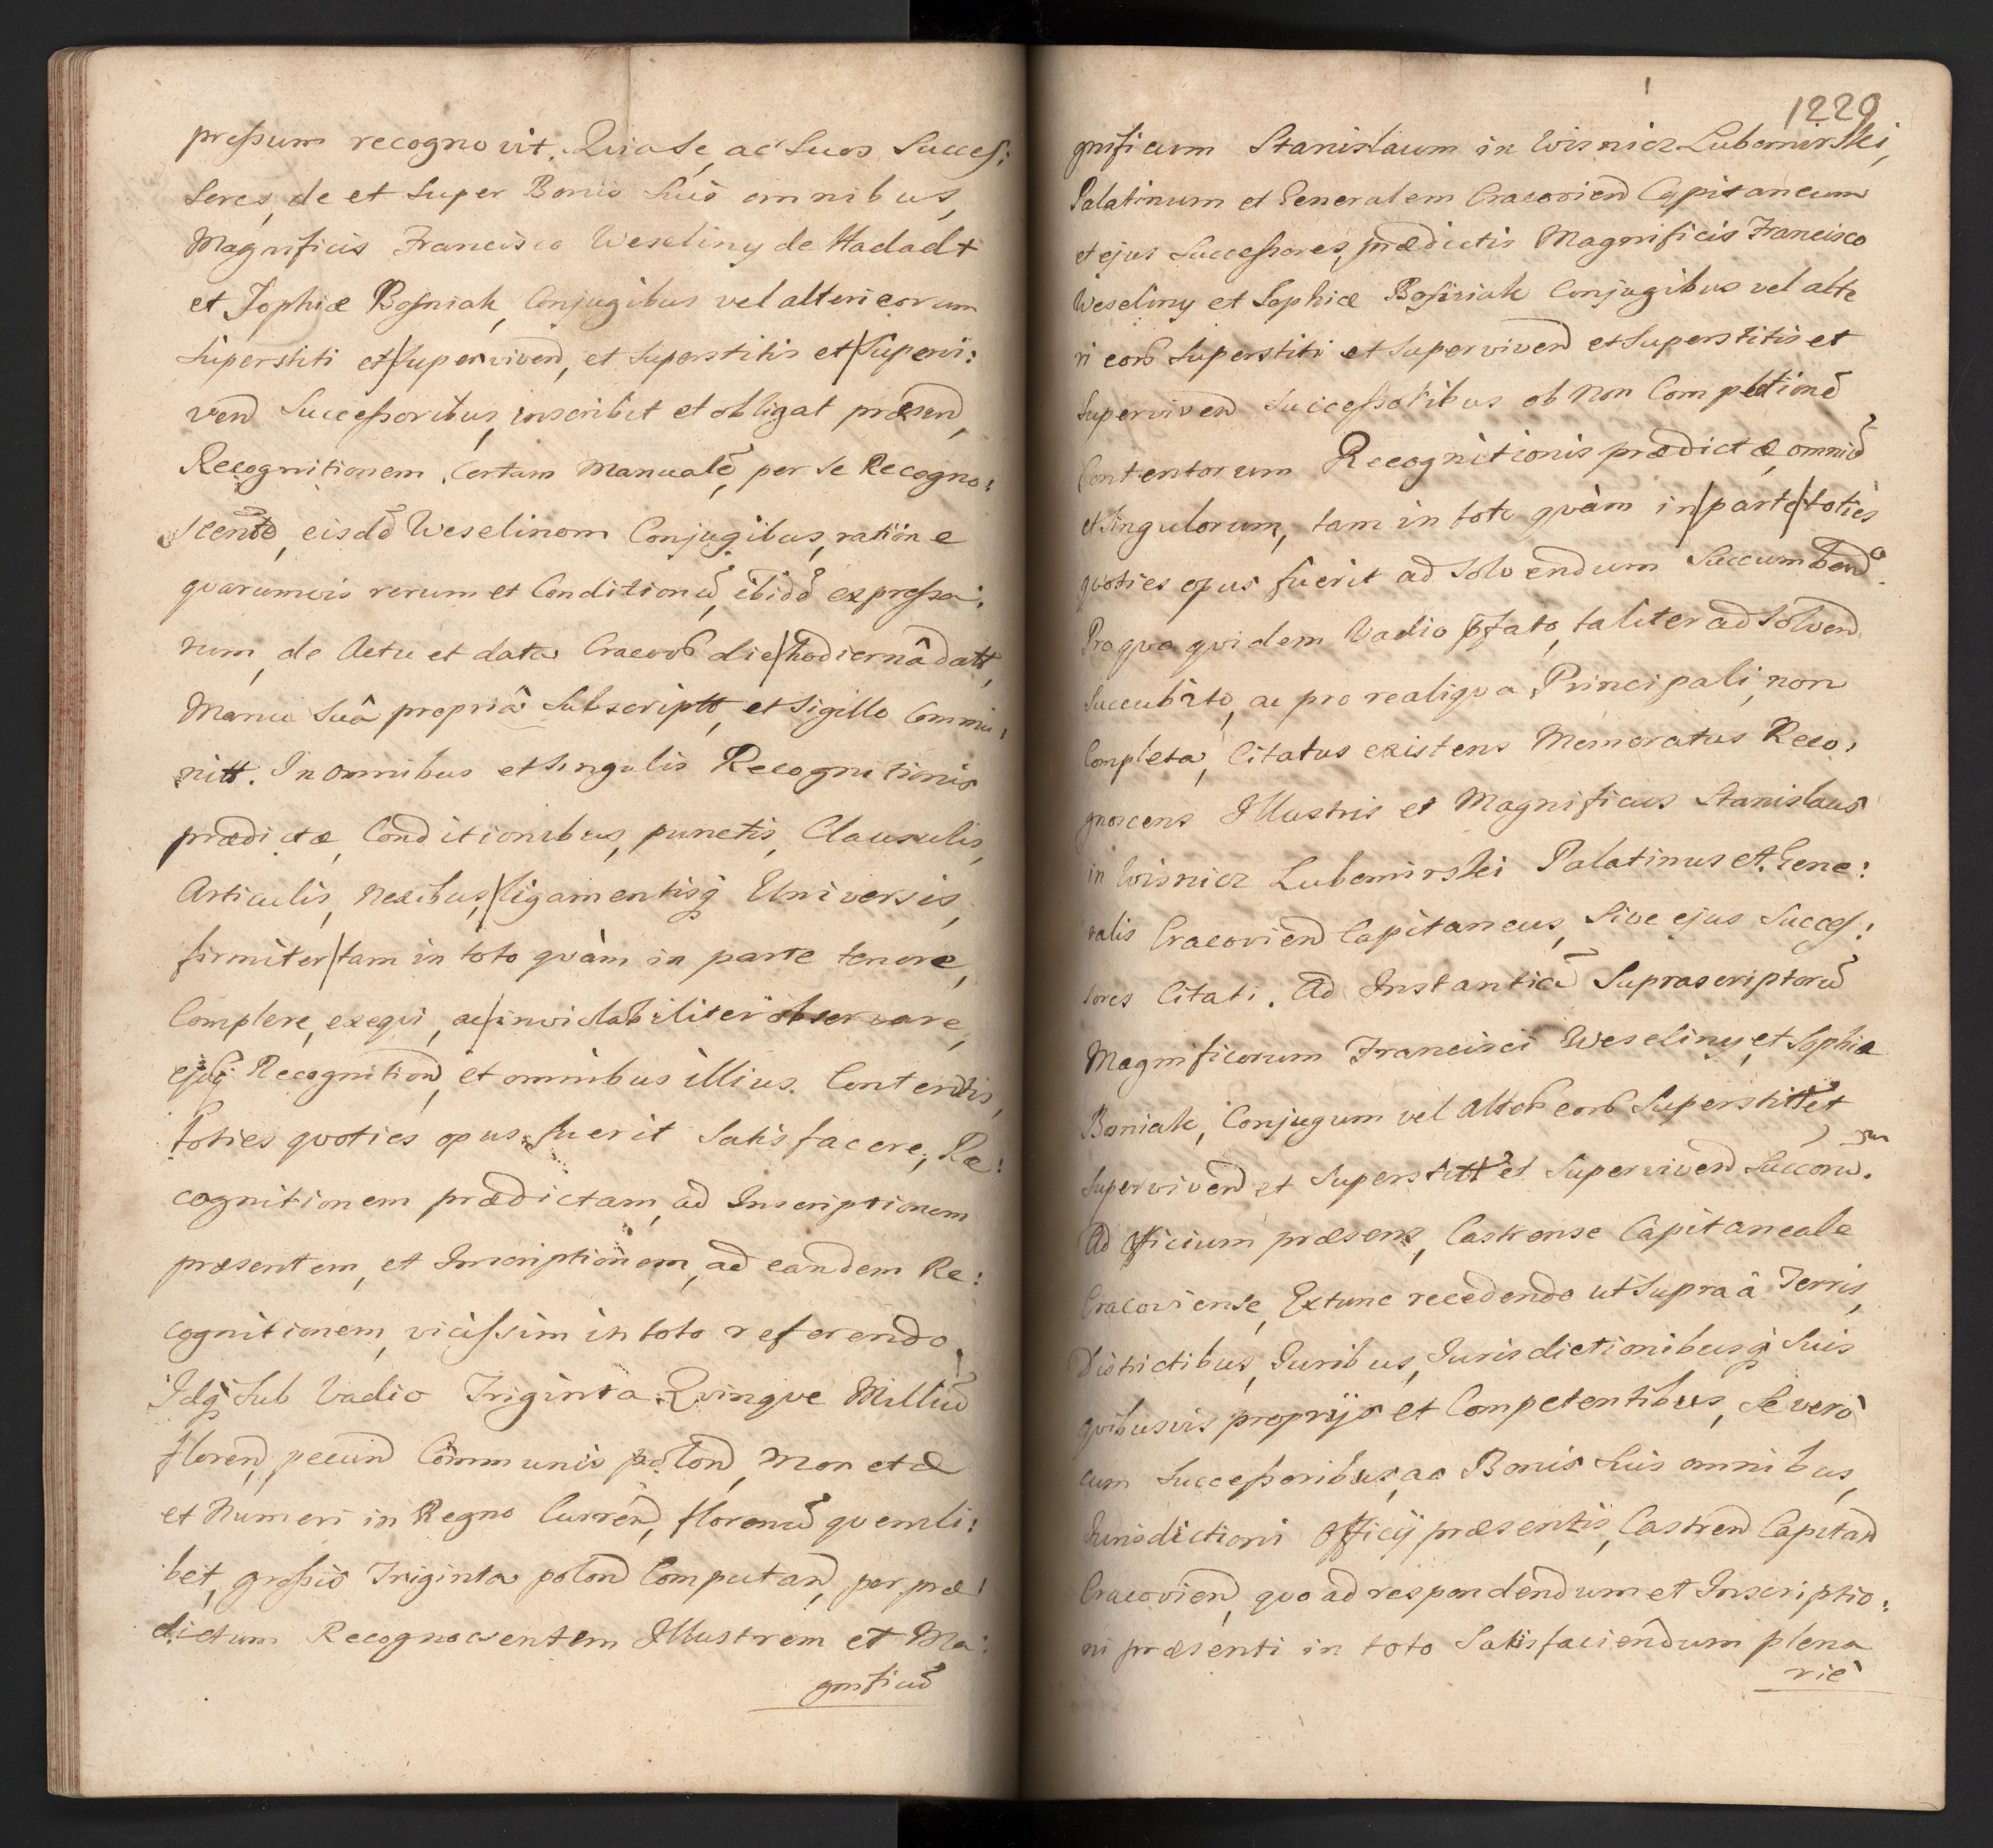 pressum recognovit. Quia se, ac Suos Succes:
sores, de et Super Bonis Suis omnibus,
Magnificis Francisco Weseliny de Hadadt
et Sophiæ Bosniak, Conjugibus vel alteri eorum
Superstiti et Superviven̄, et Superstitis et Supervi:
ven̄ Successoribus, inscribit et obligat præsen̄,
Recognitionem Certam Manualē, per se Recogno:
scentē, eisdē Weselinom Conjugibus, ratione
quarumvis rerum et Conditionū, ibidē expressa:
rum, de Actu et data Cracov die hodiernâ datt,
Manu Suâ propriâ Subscriptt, et Sigillo Commu:
nitt. In omnibus et Singulis Recognitionis
prædictæ, Conditionibus, punctis, Clausulis,
Articulis, Nexibus, ligamentisq Universis,
firmiter tam in toto quàm in parte tenere,
Complere, exequi, ac inviolabiliter observare,
ejusq Recognition̄, et omnibus illius Contentis,
toties quoties opus fuerit Satisfacere, Re:
cognitionem prædictam, ad Inscriptionem
præsentem, et Inscriptionem, ad eandem Re:
cognitionem, vicissim in toto referendo.
Idq Sub Vadio Triginta Quinque Milliū
floren̄, pecun̄ Communis polon̄, Monetæ
et Numeri in Regno Curren̄, florenū quemli:
bet, grossis Triginta polon̄ Computan̄, per præ:
dictum Recognoscentem Illustrem et Ma:
gnificū
1229
gnificum Stanislaum in Wisnicz Lubomirski,
Palatinum et Generalem Cracovien̄ Capitaneum
et ejus Successores, prædictis Magnificis Francisco
Weseliny et Sophiæ Bosniak Conjugibus vel alte
ri eor Superstiti et Superviven̄ et Superstitis et
Superviven̄ Successoribus ob non Completionē
Contentorum Recognitionis prædictæ, omniū
et Singulorum, tam in toto quàm in parte toties
quoties opus fuerit ad Solvendum Succumben̄
Pro quo quidem Vadio pfato, taliter ad Solven̄
Succubito, ac pro re aliqua Principali, non
Completa, Citatus existens Memoratus Reco:
gnoscens Illustris et Magnificus Stanislaus
in Wisnicz Lubomirski Palatinus et Gene:
ralis Cracovien̄ Capitaneus, Sive ejus Succes:
sores Citati. Ad Instantiā Suprascriptorū
Magnificorum Francisci Weseliny, et Sophiæ
Boniak, Conjugum vel alter eor Superstitt et
Superviven̄ et Superstitt et Superviven̄ Succorū.
Ad Officium præsens, Castrense Capitaneale
Cracoviense, Extunc recedendo ut Supra à Terris,
Districtibus, Juribus, Jurisdictionibusq Suis
quibusvis proprijs et Competentibus, Se verò
cum Successoribus, ac Bonis Suis omnibus,
Jurisdictioni Officij præsentis, Castren̄ Capitan̄
Cracovien̄, quo ad respondendum et Inscriptio:
ni præsenti in toto Satisfaciendum plena
riè